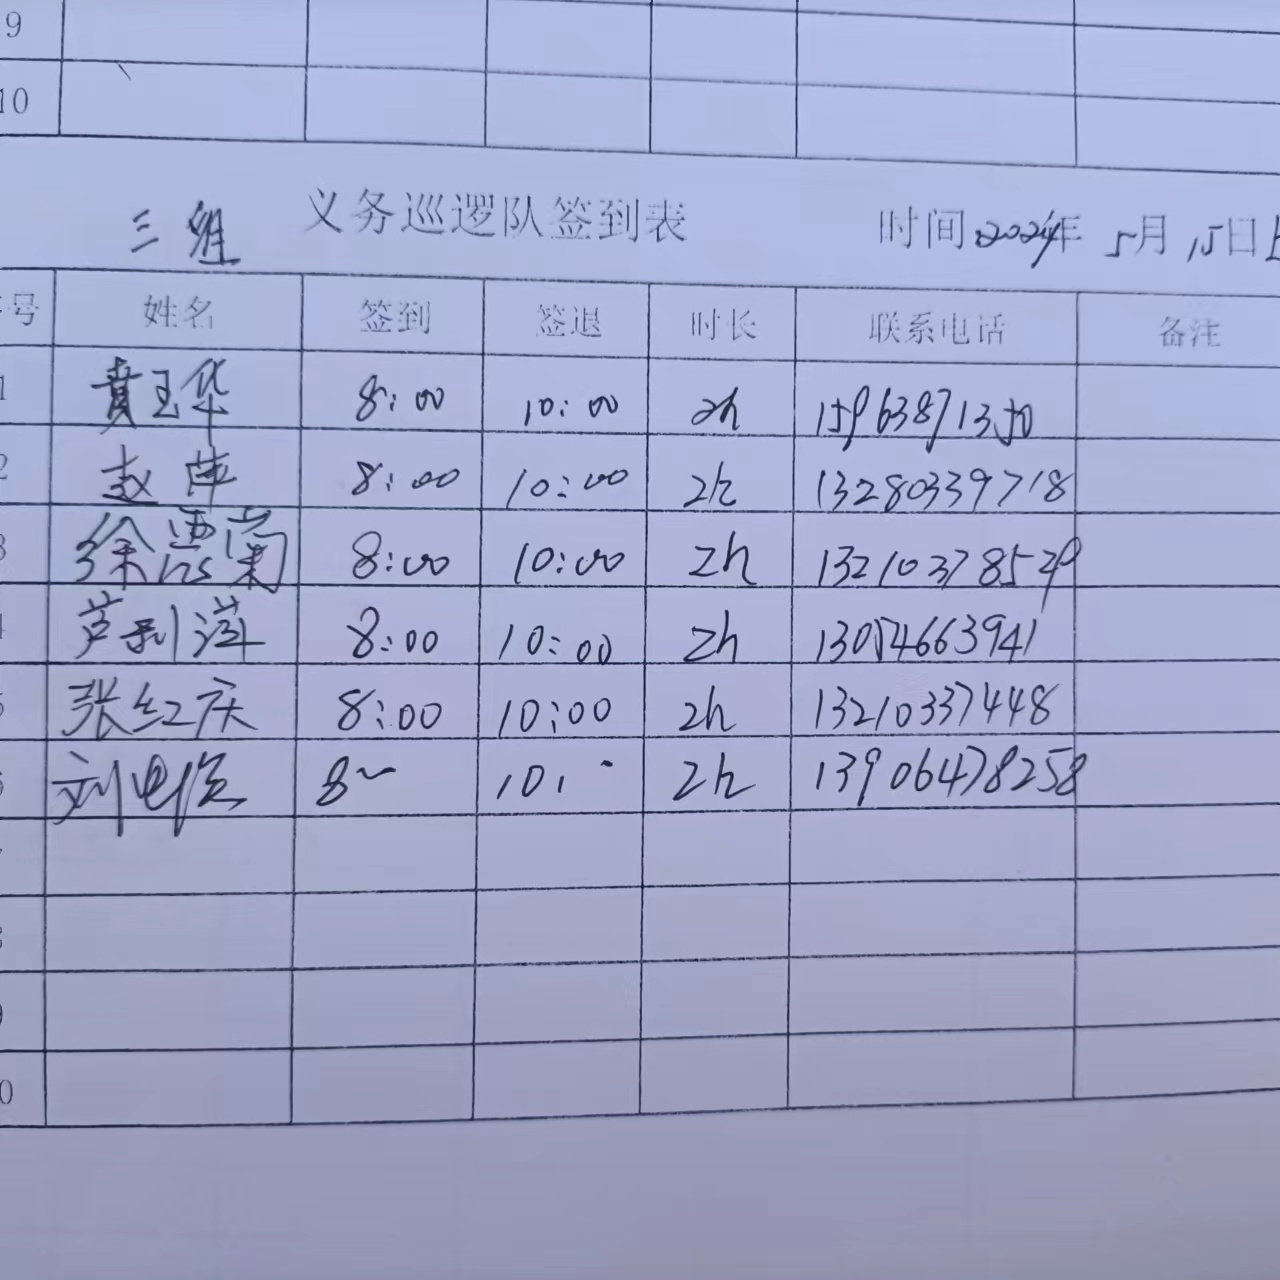 9
10
三组 义务巡逻队签到表 时间 2024年 5月 15日
号 姓名 签到 签退 时长 联系电话 备注
1 黄玉华 8:00 10:00 2h 15963871350
2 赵萍 8:00 10:00 2h 13280339718
3 徐 8:00 10:00 2h 13210378529
芦利萍 8:00 10:00 2h 13054663941
5 张红庆 8:00 10:00 2h 13210337448
刘 8 10 2h 13906478258
0